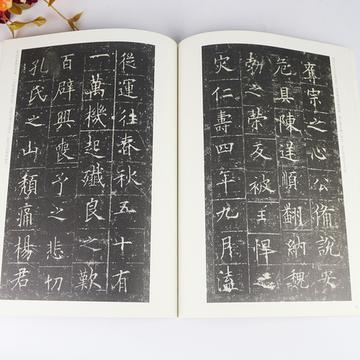 奪宗之心公備説安
危具陳逆順翻納魏
勃之榮反被王悍之
灾仁壽四年九月溘
從運往春秋五十有
一萬機起殲良之歎
百辟興喪予之悲切
孔氏之山頹痛楊君